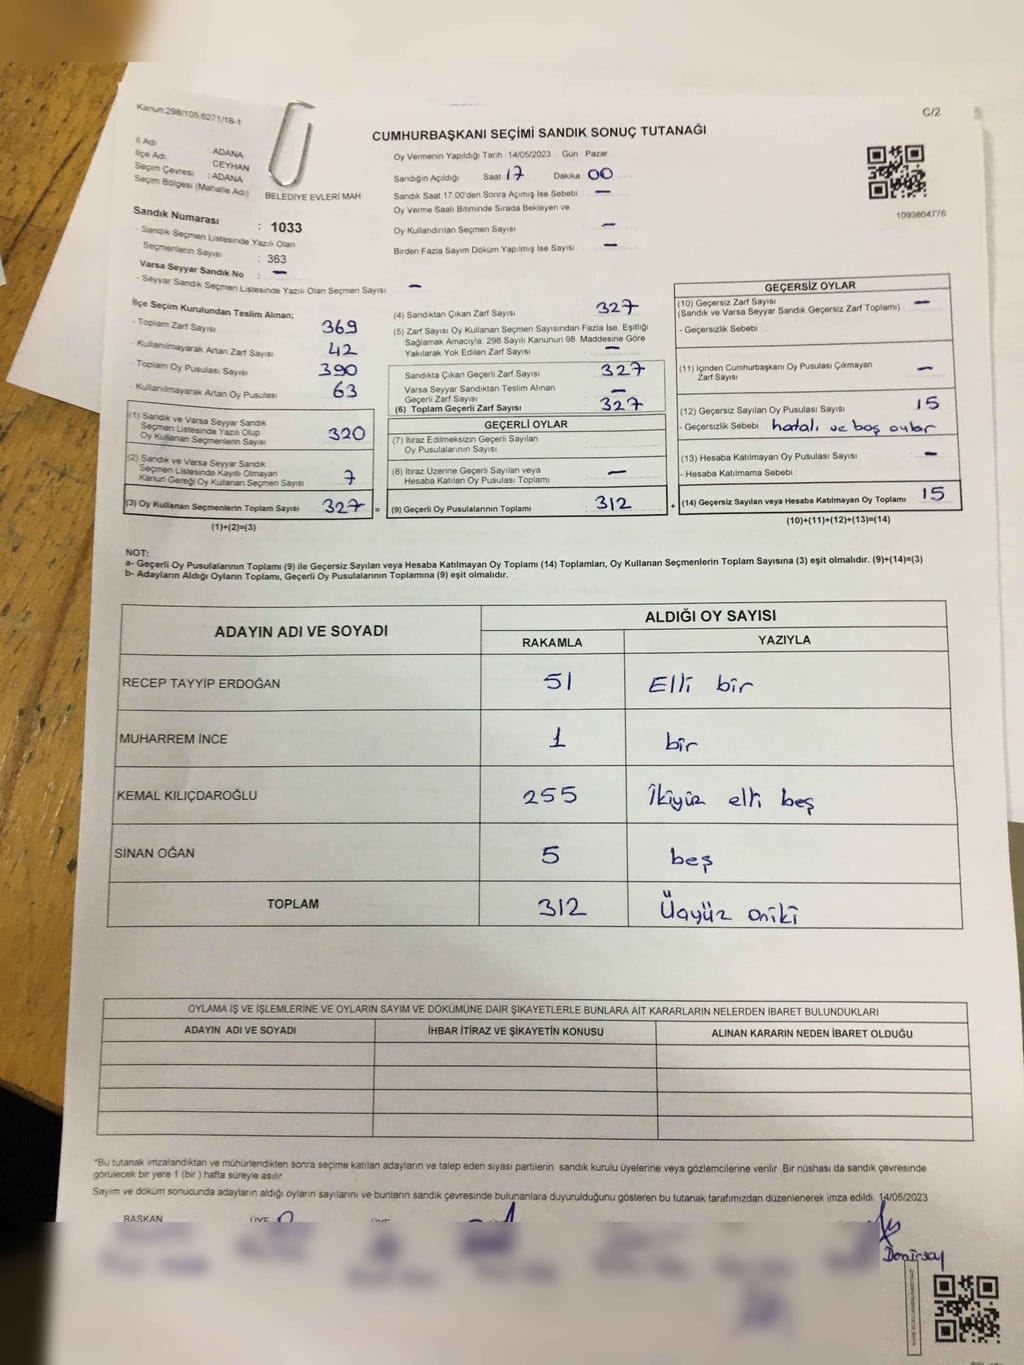 Kanun:298/105,6271/18-1
C/2
CUMHURBAŞKANI SEÇİMİ SANDIK SONUÇ TUTANAĞI
İl Adı ADANA
İlçe Adı CEYHAN
Seçim Çevresi :ADANA
Seçim Bölgesi (Mahalle Adı) BELEDİYE EVLERİ MAH
Sandık Numarası : 1033
- Sandık Seçmen Listesinde Yazılı Olan
Seçmenlerin Sayısı : 363
Varsa Seyyar Sandık No : -
- Seyyar Sandık Seçmen Listesinde Yazılı Olan Seçmen Sayısı: -
Oy Vermenin Yapıldığı Tarih 14/05/2023 Gün Pazar
Sandığın Açıldığı Saat 17 Dakika 00
Sandık Saat 17:00'den Sonra Açımış İse Sebebi -
Oy Verme Saati Bitiminde Sırada Bekleyen ve
Oy Kullandırılan Seçmen Sayısı -
Birden Fazla Sayım Döküm Yapılmış İse Sayısı -
1093804776
İlçe Seçim Kurulundan Teslim Alınan;
- Toplam Zarf Sayısı 369
- Kullanılmayarak Artan Zarf Sayısı 42
- Toplam Oy Pusulası Sayısı 390
- Kullanılmayarak Artan Oy Pusulası 63
(1) Sandık ve Varsa Seyyar Sandık
Seçmen Listesinde Yazılı Olup
Oy Kullanan Seçmenlerin Sayısı 320
(2) Sandık ve Varsa Seyyar Sandık
Seçmen Listesinde Kayıtlı Olmayan
Kanun Gereği Oy Kullanan Seçmen Sayısı 7
(3) Oy Kullanan Seçmenlerin Toplam Sayısı 327 =
(1)+(2)=(3)
(4) Sandıktan Çıkan Zarf Sayısı 327
(5) Zarf Sayısı Oy Kullanan Seçmen Sayısından Fazla İse, Eşitliği
Sağlamak Amacıyla, 298 Sayılı Kanunun 98. Maddesine Göre
Yakılarak Yok Edilen Zarf Sayısı -
Sandıkta Çıkan Geçerli Zarf Sayısı 327
Varsa Seyyar Sandıktan Teslim Alınan
Geçerli Zarf Sayısı -
(6) Toplam Geçerli Zarf Sayısı 327
GEÇERLİ OYLAR
(7) İtiraz Edilmeksizin Geçerli Sayılan
Oy Pusulalarının Sayısı
(8) İtiraz Üzerine Geçerli Sayılan veya
Hesaba Katılan Oy Pusulası Toplamı -
(9) Geçerli Oy Pusulalarının Toplamı 312 +
GEÇERSİZ OYLAR
(10) Geçersiz Zarf Sayısı -
(Sandık ve Varsa Seyyar Sandık Geçersiz Zarf Toplamı)
- Geçersizlik Sebebi
(11) İçinden Cumhurbaşkanı Oy Pusulası Çıkmayan
Zarf Sayısı -
(12) Geçersiz Sayılan Oy Pusulası Sayısı 15
- Geçersizlik Sebebi hatalı ve boş oylar
(13) Hesaba Katılmayan Oy Pusulası Sayısı -
- Hesaba Katılmama Sebebi
(14) Geçersiz Sayılan veya Hesaba Katılmayan Oy Toplamı 15
(10)+(11)+(12)+(13)=(14)
NOT:
a- Geçerli Oy Pusulalarının Toplamı (9) ile Geçersiz Sayılan veya Hesaba Katılmayan Oy Toplamı (14) Toplamları, Oy Kullanan Seçmenlerin Toplam Sayısına (3) eşit olmalıdır. (9)+(14)=(3)
b- Adayların Aldığı Oyların Toplamı, Geçerli Oy Pusulalarının Toplamına (9) eşit olmalıdır.
ADAYIN ADI VE SOYADI
ALDIĞI OY SAYISI
RAKAMLA YAZIYLA
RECEP TAYYİP ERDOĞAN 51 Elli bir
MUHARREM İNCE 1 bir
KEMAL KILIÇDAROĞLU 255 İkiyüz elli beş
SİNAN OĞAN 5 beş
TOPLAM 312 Üçyüz oniki
OYLAMA İŞ VE İŞLEMLERİNE VE OYLARIN SAYIM VE DÖKÜMÜNE DAİR ŞİKAYETLERLE BUNLARA AİT KARARLARIN NELERDEN İBARET BULUNDUKLARI
ADAYIN ADI VE SOYADI İHBAR İTİRAZ VE ŞİKAYETİN KONUSU ALINAN KARARIN NEDEN İBARET OLDUĞU
*Bu tutanak imzalandıktan ve mühürlendikten sonra seçime katılan adayların ve talep eden siyasi partilerin sandık kurulu üyelerine veya gözlemcilerine verilir. Bir nüshası da sandık çevresinde
görülecek bir yere 1 (bir ) hafta süreyle asılır.
Sayım ve döküm sonucunda adayların aldığı oyların sayılarını ve bunların sandık çevresinde bulunanlara duyurulduğunu gösteren bu tutanak tarafımızdan düzenlenerek imza edildi. 14/05/2023
BAŞKAN ÜYE